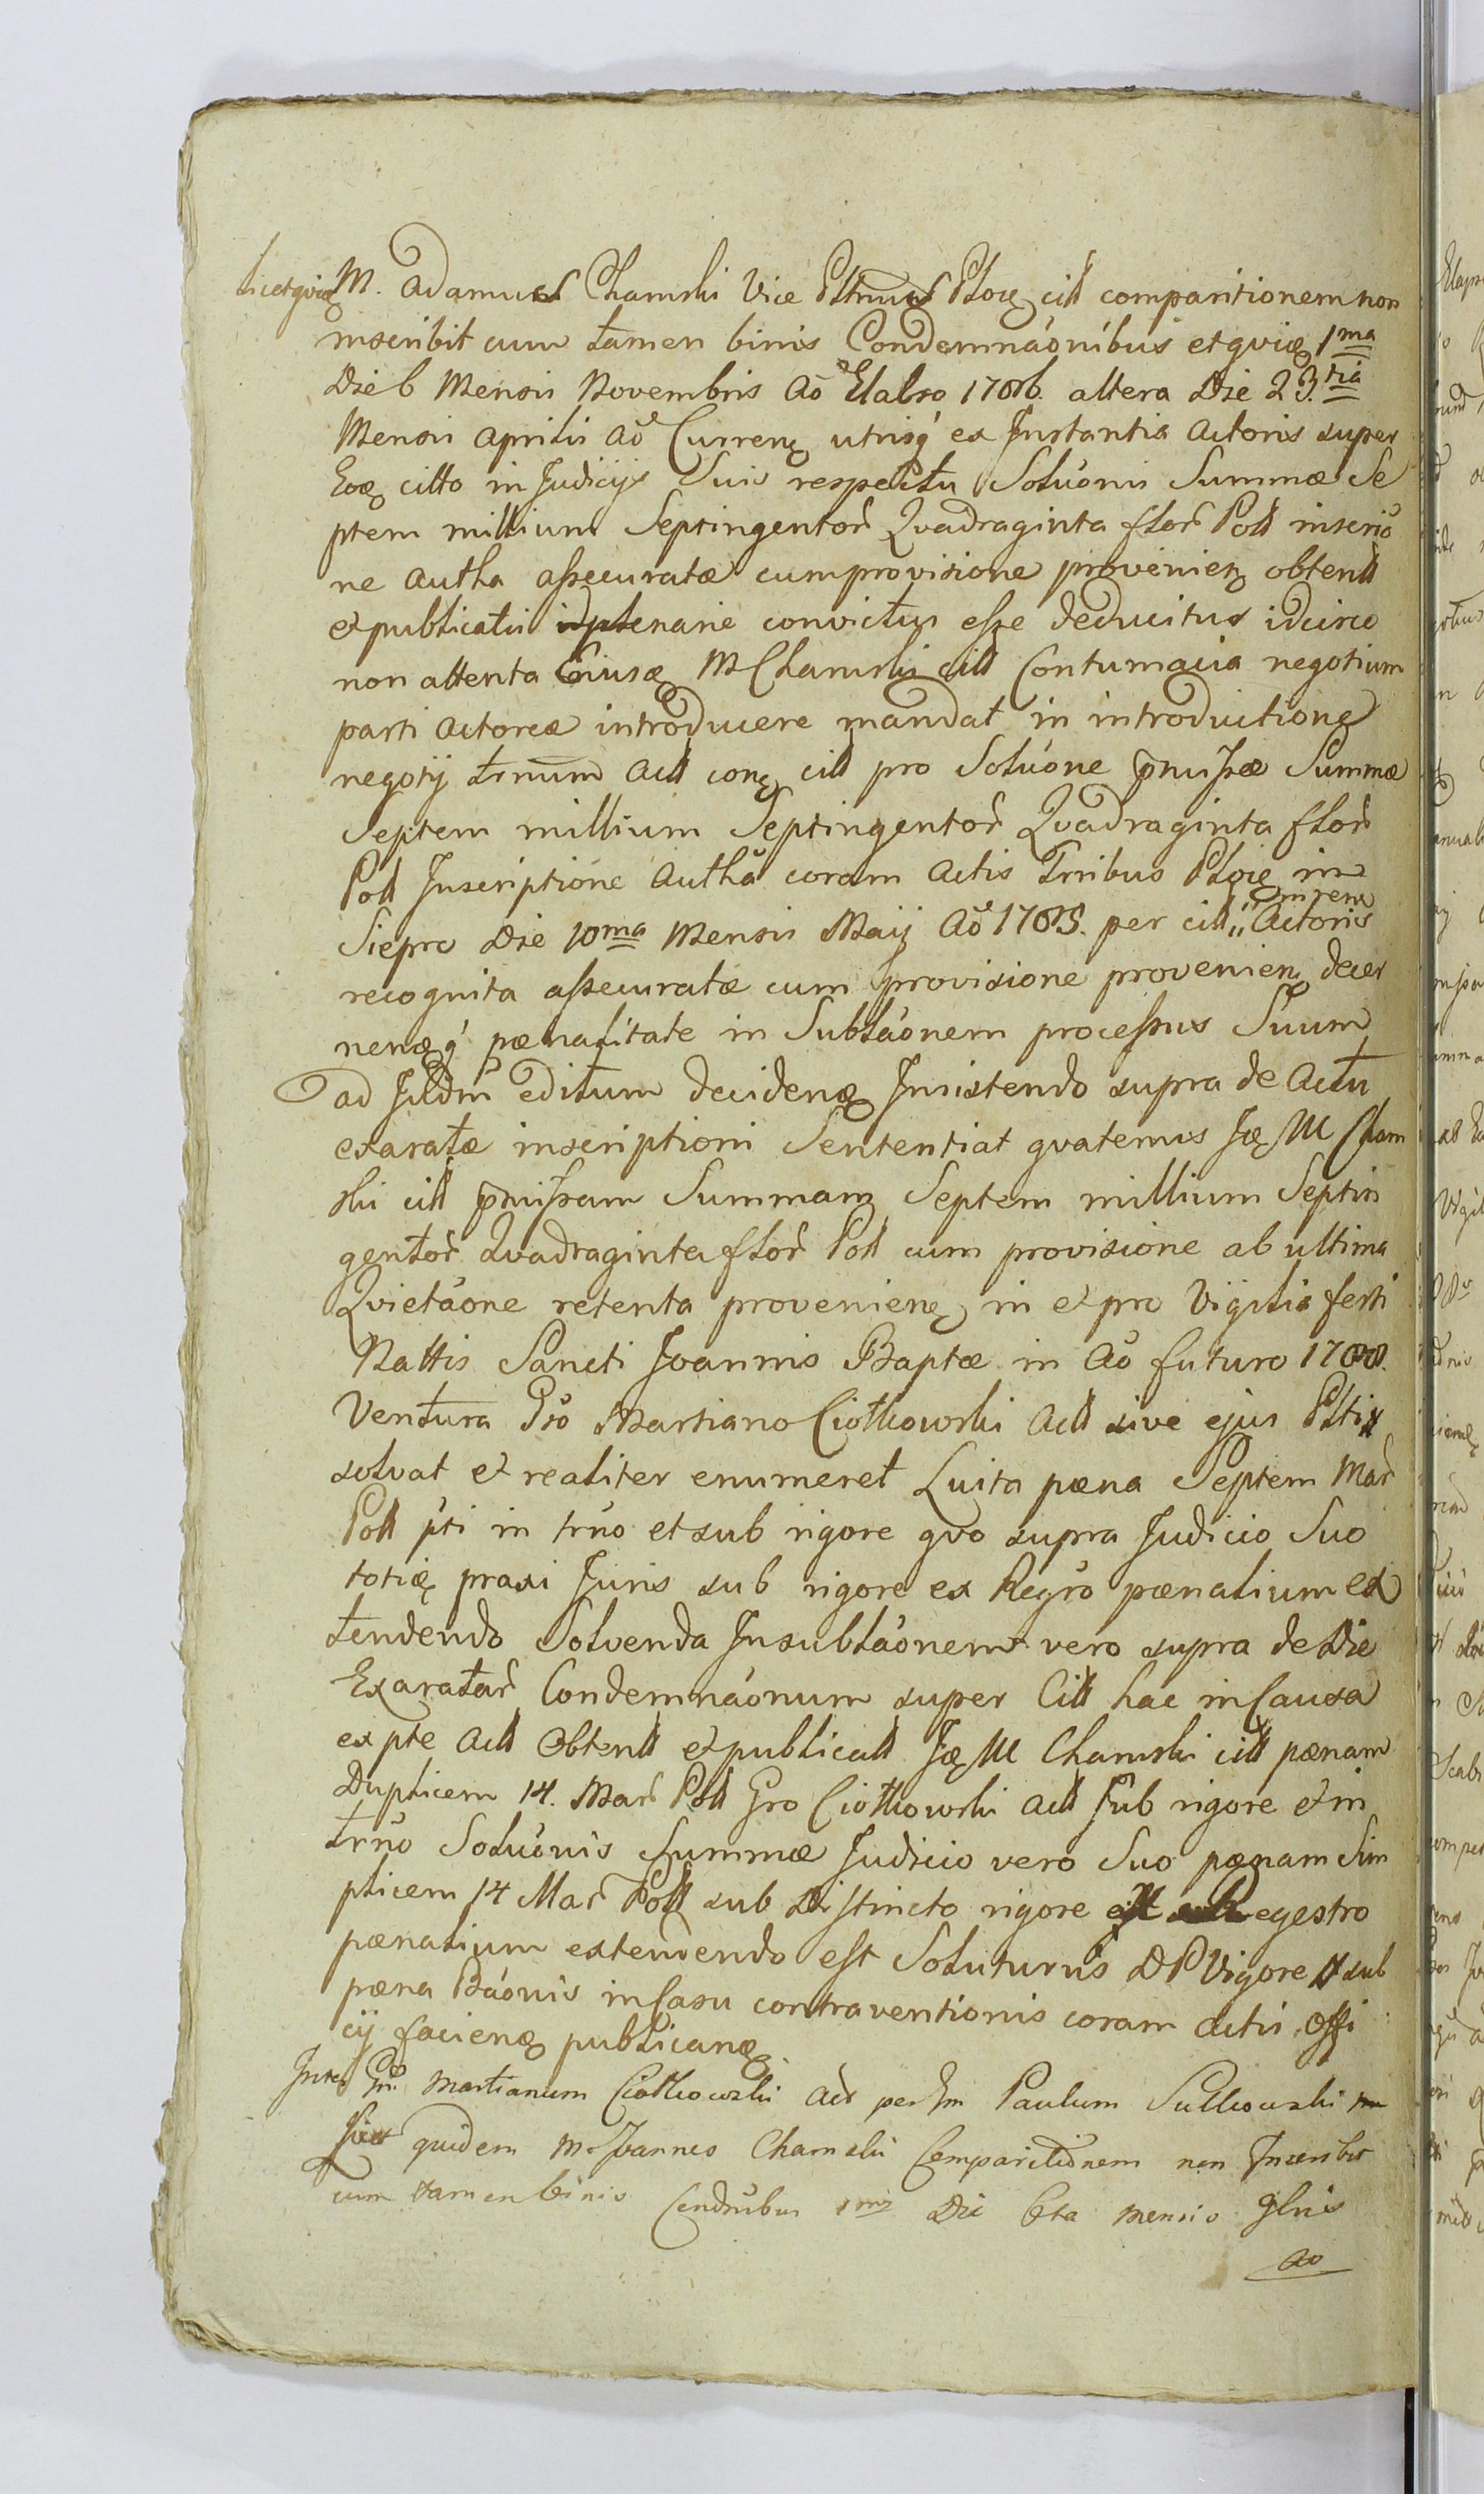 licet qvidę M. Adamus Chamski Vice Pltnus Ploc cill comparitionem non
inscribit cum tamen binis Condemnáonibus et qvidę 1ma
Die 6 Mensis Novembris Aõ Elabso 1786. altera Die 23.tia
Mensis Aprilis Aõ Currenę utrisq́ ex Instantia Actoris super
Eoę citto in Judicijs Suis respectu Solúonis Summæ Se
ptem millium Septingentor Qvadraginta flor Poll inscrip
ne autha assecuratæ cum provisione provenienę obtentt
et publicatis convictus esse deducitur idcirco
non attenta Eiusdę M Chamski citt Contumacia negotium
parti Actoreæ introducere mandat in introductione
negotij trnum Actt conę citt pro Solúone pmissæ Summæ
Septem millium Septingentor Qvadraginta flor
Poll Inscriptione Autha coram Actis Trribus Plocę in
Siepro Die 10ma Mensis Maij Aõ 1785. per citt in rem Actoris
recognita assecuratæ cum provisione provenienę decer
nendęq́ pænalitate in Subláonem processus Suum
ad Judm editum decidendę Insistendo supra de Actu
exaratæ inscriptioni Sententiat qvatenus Idę M Cham
ski citt pmissam Summam Septem millium Septin
gentor Qvadraginta flor Poll cum provisione ab ultima
Qvietáone retenta provenienę in et pro Vigilia festi
Nattis Sancti Joannis Baptæ in Aõ futuro 1788.
Ventura Gso Martiano Ciołkowski Actt sive ejus Pltti
solvat et realiter enumeret Luita pæna Septem Mar
Poll pti in trno et sub rigore qvo supra Judicio Suo
totidę praxi Juris sub rigore ex Regro pænalium ex
tendendo Solvenda In subláonem vero supra de Die
Exaratar Condemnáonum super Citt hac in Causa
ex pte Actt Obtentt et publicatt Idę M Chamski citt pænam
Duplicem 14. Mar Poll Gro Ciołkowski Actt Sub rigore et in
trno Solúonis Summæ Judicio vero Suo pænam Sim
plicem 14 Mar Poll sub Distincto rigore Regestro
pænalium extendendo est Soluturus D P Vigore sub
pæna Báonis in Casu contraventionis coram Actis Offi
cij faciendę publicandę.
Inter Gn. Martianum Ciołkowski Act per Gm Paulum Sułkowski
quidem M Joannes Chamski Comparitionem non Inscribit
cum tamen binis Condnibus 1ma Die 6ta mensis 9bris
ao